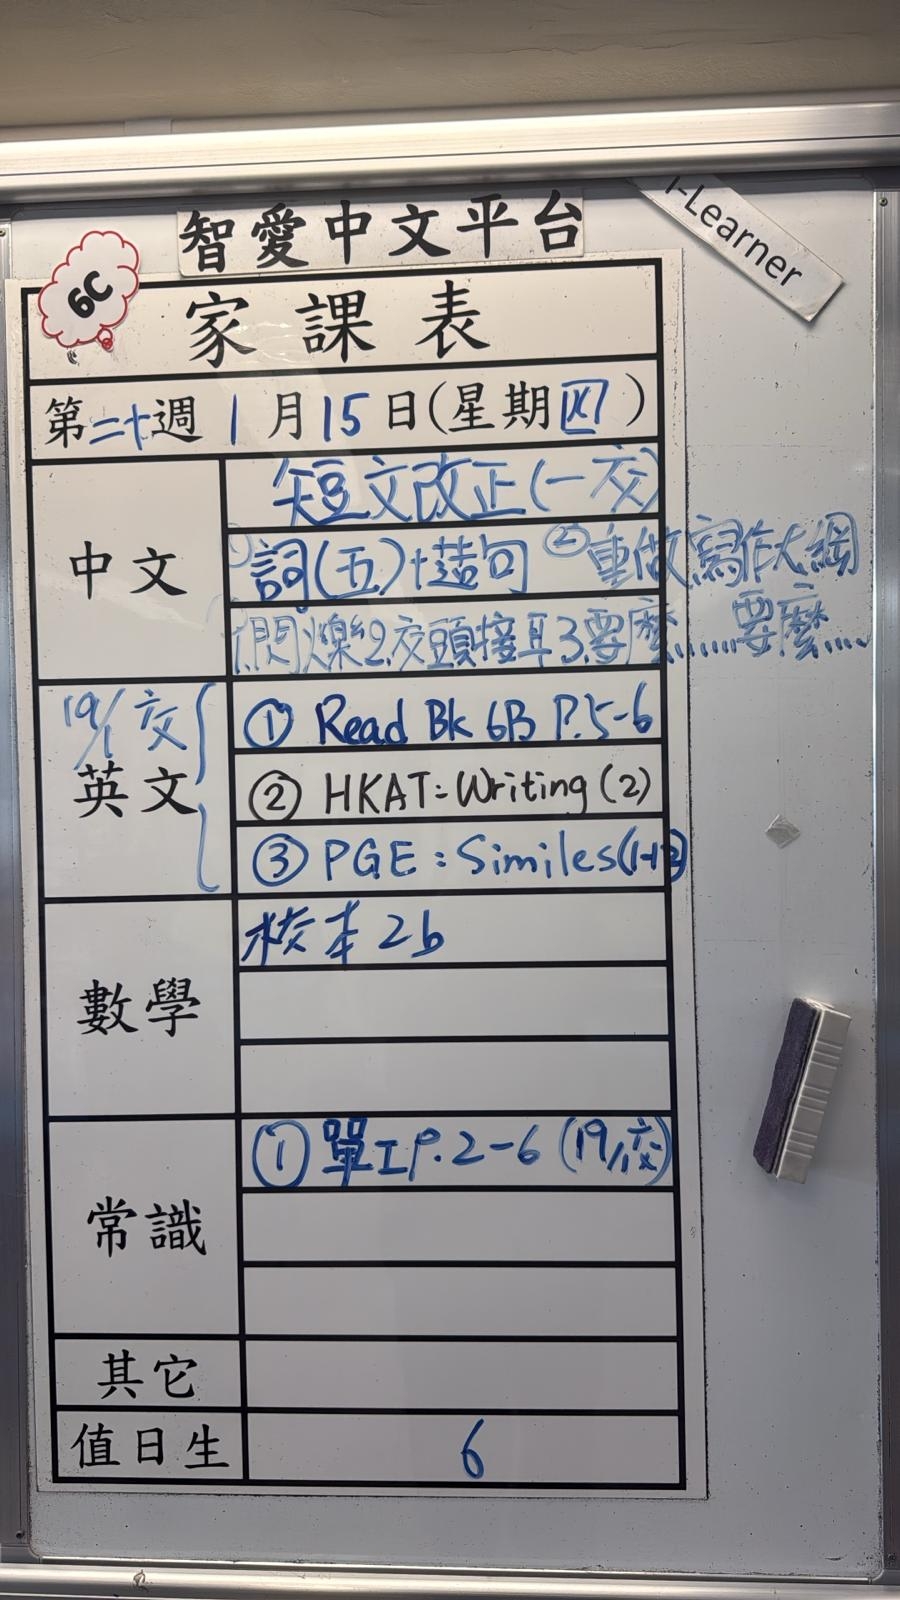 智愛中文平台
i-Learner
6C
家課表
第二十週 1月15日(星期四)
中文
短文改正(一交)
①詞(五)+造句 ②重做寫作大綱
1.閃爍2.交頭接耳3.要麼……要麼……
19/1交
英文
① Read Bk 6B P.5-6
② HKAT: Writing (2)
③ PGE: Similes(1-12)
數學
校本 2b
常識
① 單工P.2-6 (19/1交)
其它
值日生
6